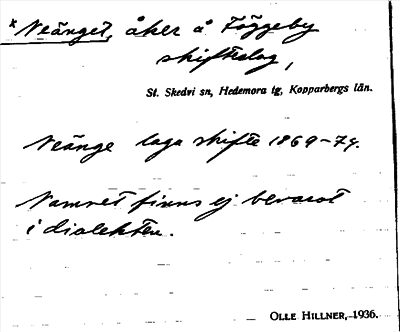 * Neänget, åker å Foggeby
skifteslag,
St. Skedvi sn, Hedemora tg, Kopparbergs län.
Neänge laga skifte 1869-74.
Namnet finns ej bevarat
i dialekten.
OLLE HILLNER, 1936.